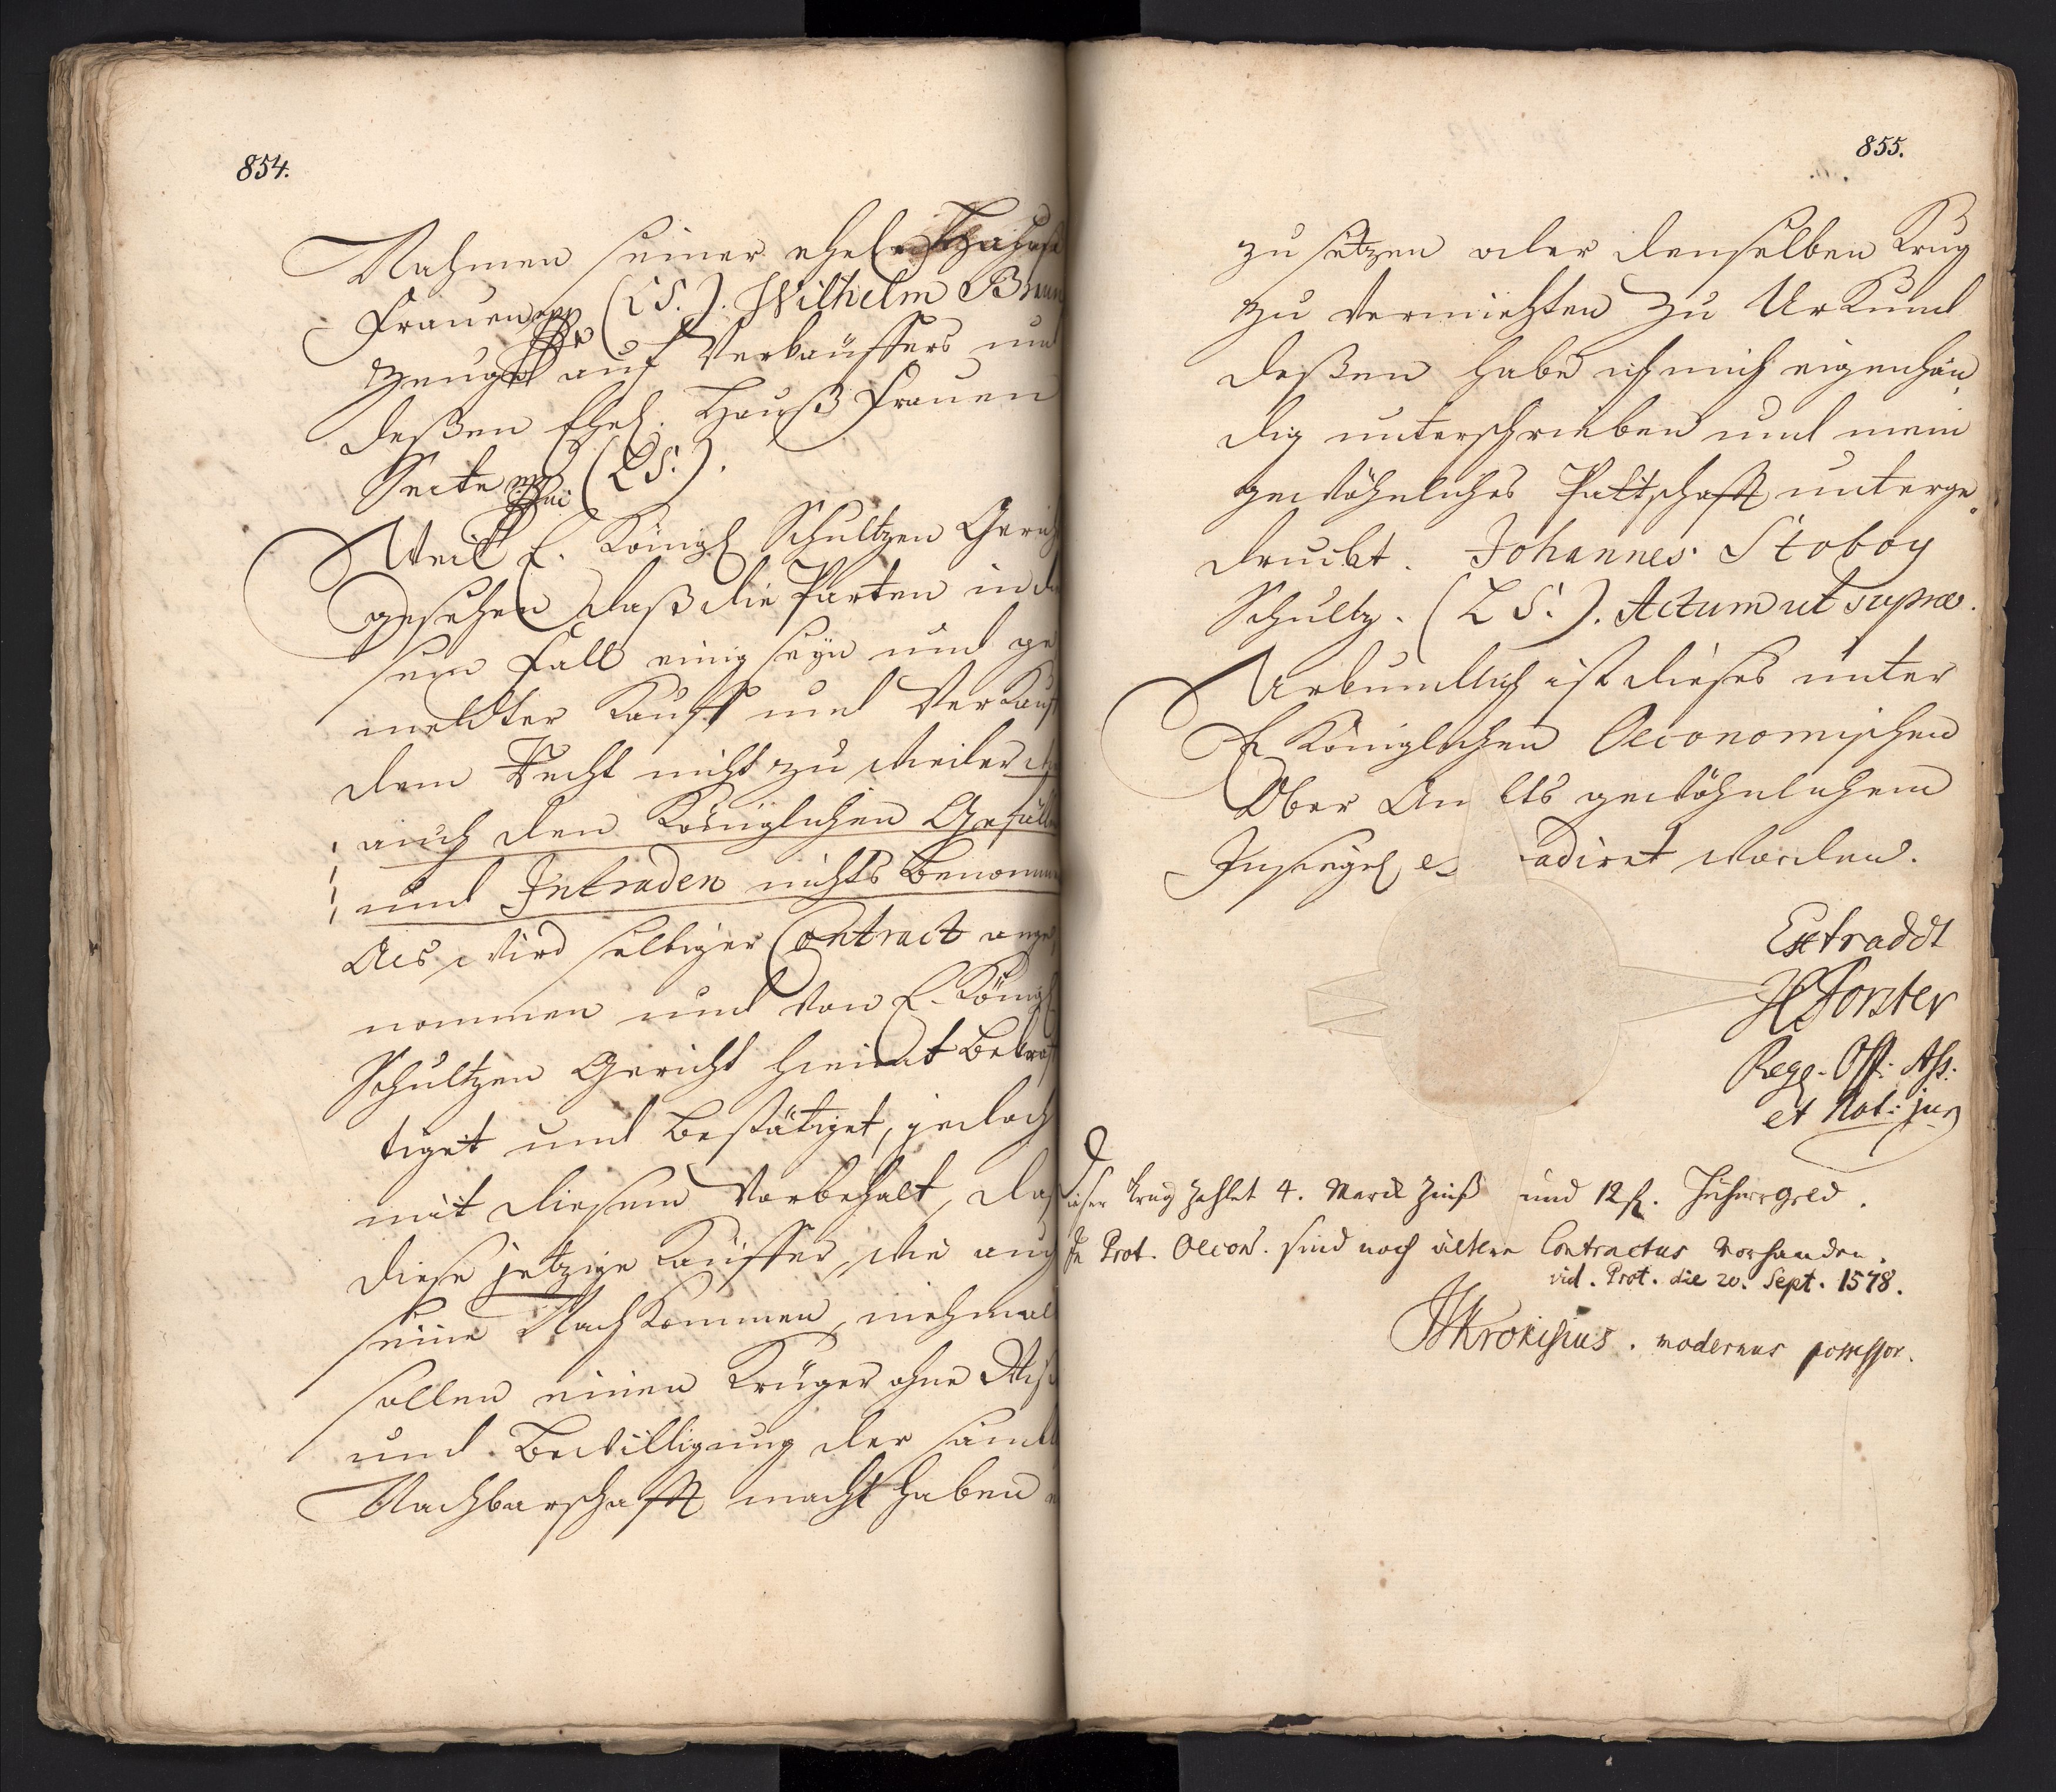 854.
Nahmen seiner ehel.
Frauen mpp (LS.). Wilhelm Braun
Zeuge auf Verkäuffers und
deßen Ehel. Hauß Frauen
Seite mpp (LS.).
Weil E. Königl Schultzen Gerich
gesehen daß die Parten in die
sem Fall einig seyn und ge
meldter Kauff und Verkauff
dem Recht nicht zu wieder
auch den Königlichen Gefälle
und Intraden nichts benomm
Als wird selbiger Contract ange
nommen und von E. Königl
Schultzen Gericht hiemit bekräf
tiget und bestätiget, jedoch
mit diesem Vorbehalt, daß
diese jetzige Käuffer, wie auch
seine NachKommen, niehmal
sollen einen Krüger ohne Wiß
und Bewilligung der sämbtl
Nachbarschafft macht haben
855.
zu setzen oder denselben Krug
zu vermiehten Zu UrKund
deßen habe ich mich eigenhän
dig unterschrieben und mein
gewöhnliches Pittschafft unterge
druckt. Johannes Stoboy
Schultz. (LS.). Actum ut supra.
Urkundlich ist dieses unter
E Königlichen Oeconomischen
Ober Am bts gewöhnlichem
Insiegel ex radiret worden.
Extraddt
HForster
Reg. Off: Ass:
et Not: jur
Dieser Krug zahlet 4. Marck Zinß und 12 ß. Hühnergeld.
In Prot. Oecon. sind noch ältere Contractus vorhanden.
vid. Prot. die 20. Sept. 1578.
Krokisius. modernus possessor.